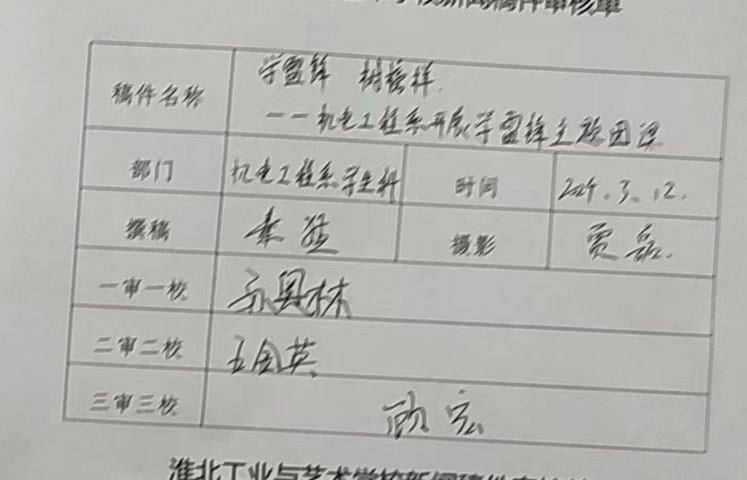 新闻稿件审核单
稿件名称 学雷锋 树榜样
——机电工程系开展学雷锋主题团课
部门 机电工程系学生科 时间 3.12.
撰稿 摄影 贾磊.
一审一校
二审二校 王金英
三审三校 顾宏
淮北工业与艺术学校新闻稿件审核单